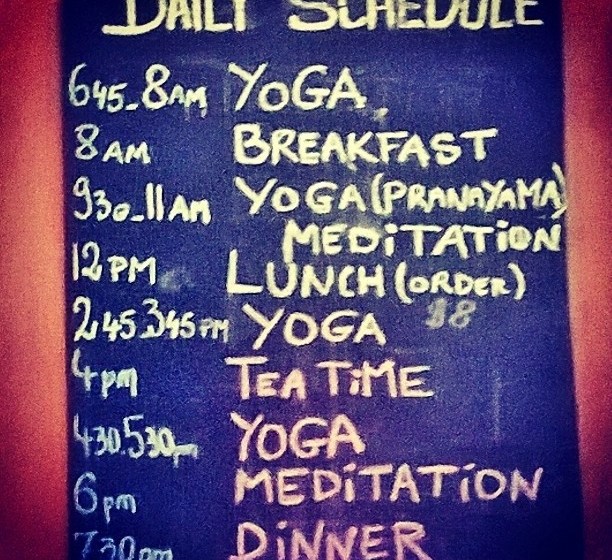 DAILY SCHEDULE
645-8AM YOGA
8AM BREAKFAST
930-11AM YOGA (PRANAYAMA)
MEDiTATiON
12PM LUNCH (ORDER)
2,45.345PM YOGA
4pm TEA TiME
430.530pm YOGA
6pm MEDiTATiON
730pm DiNNER